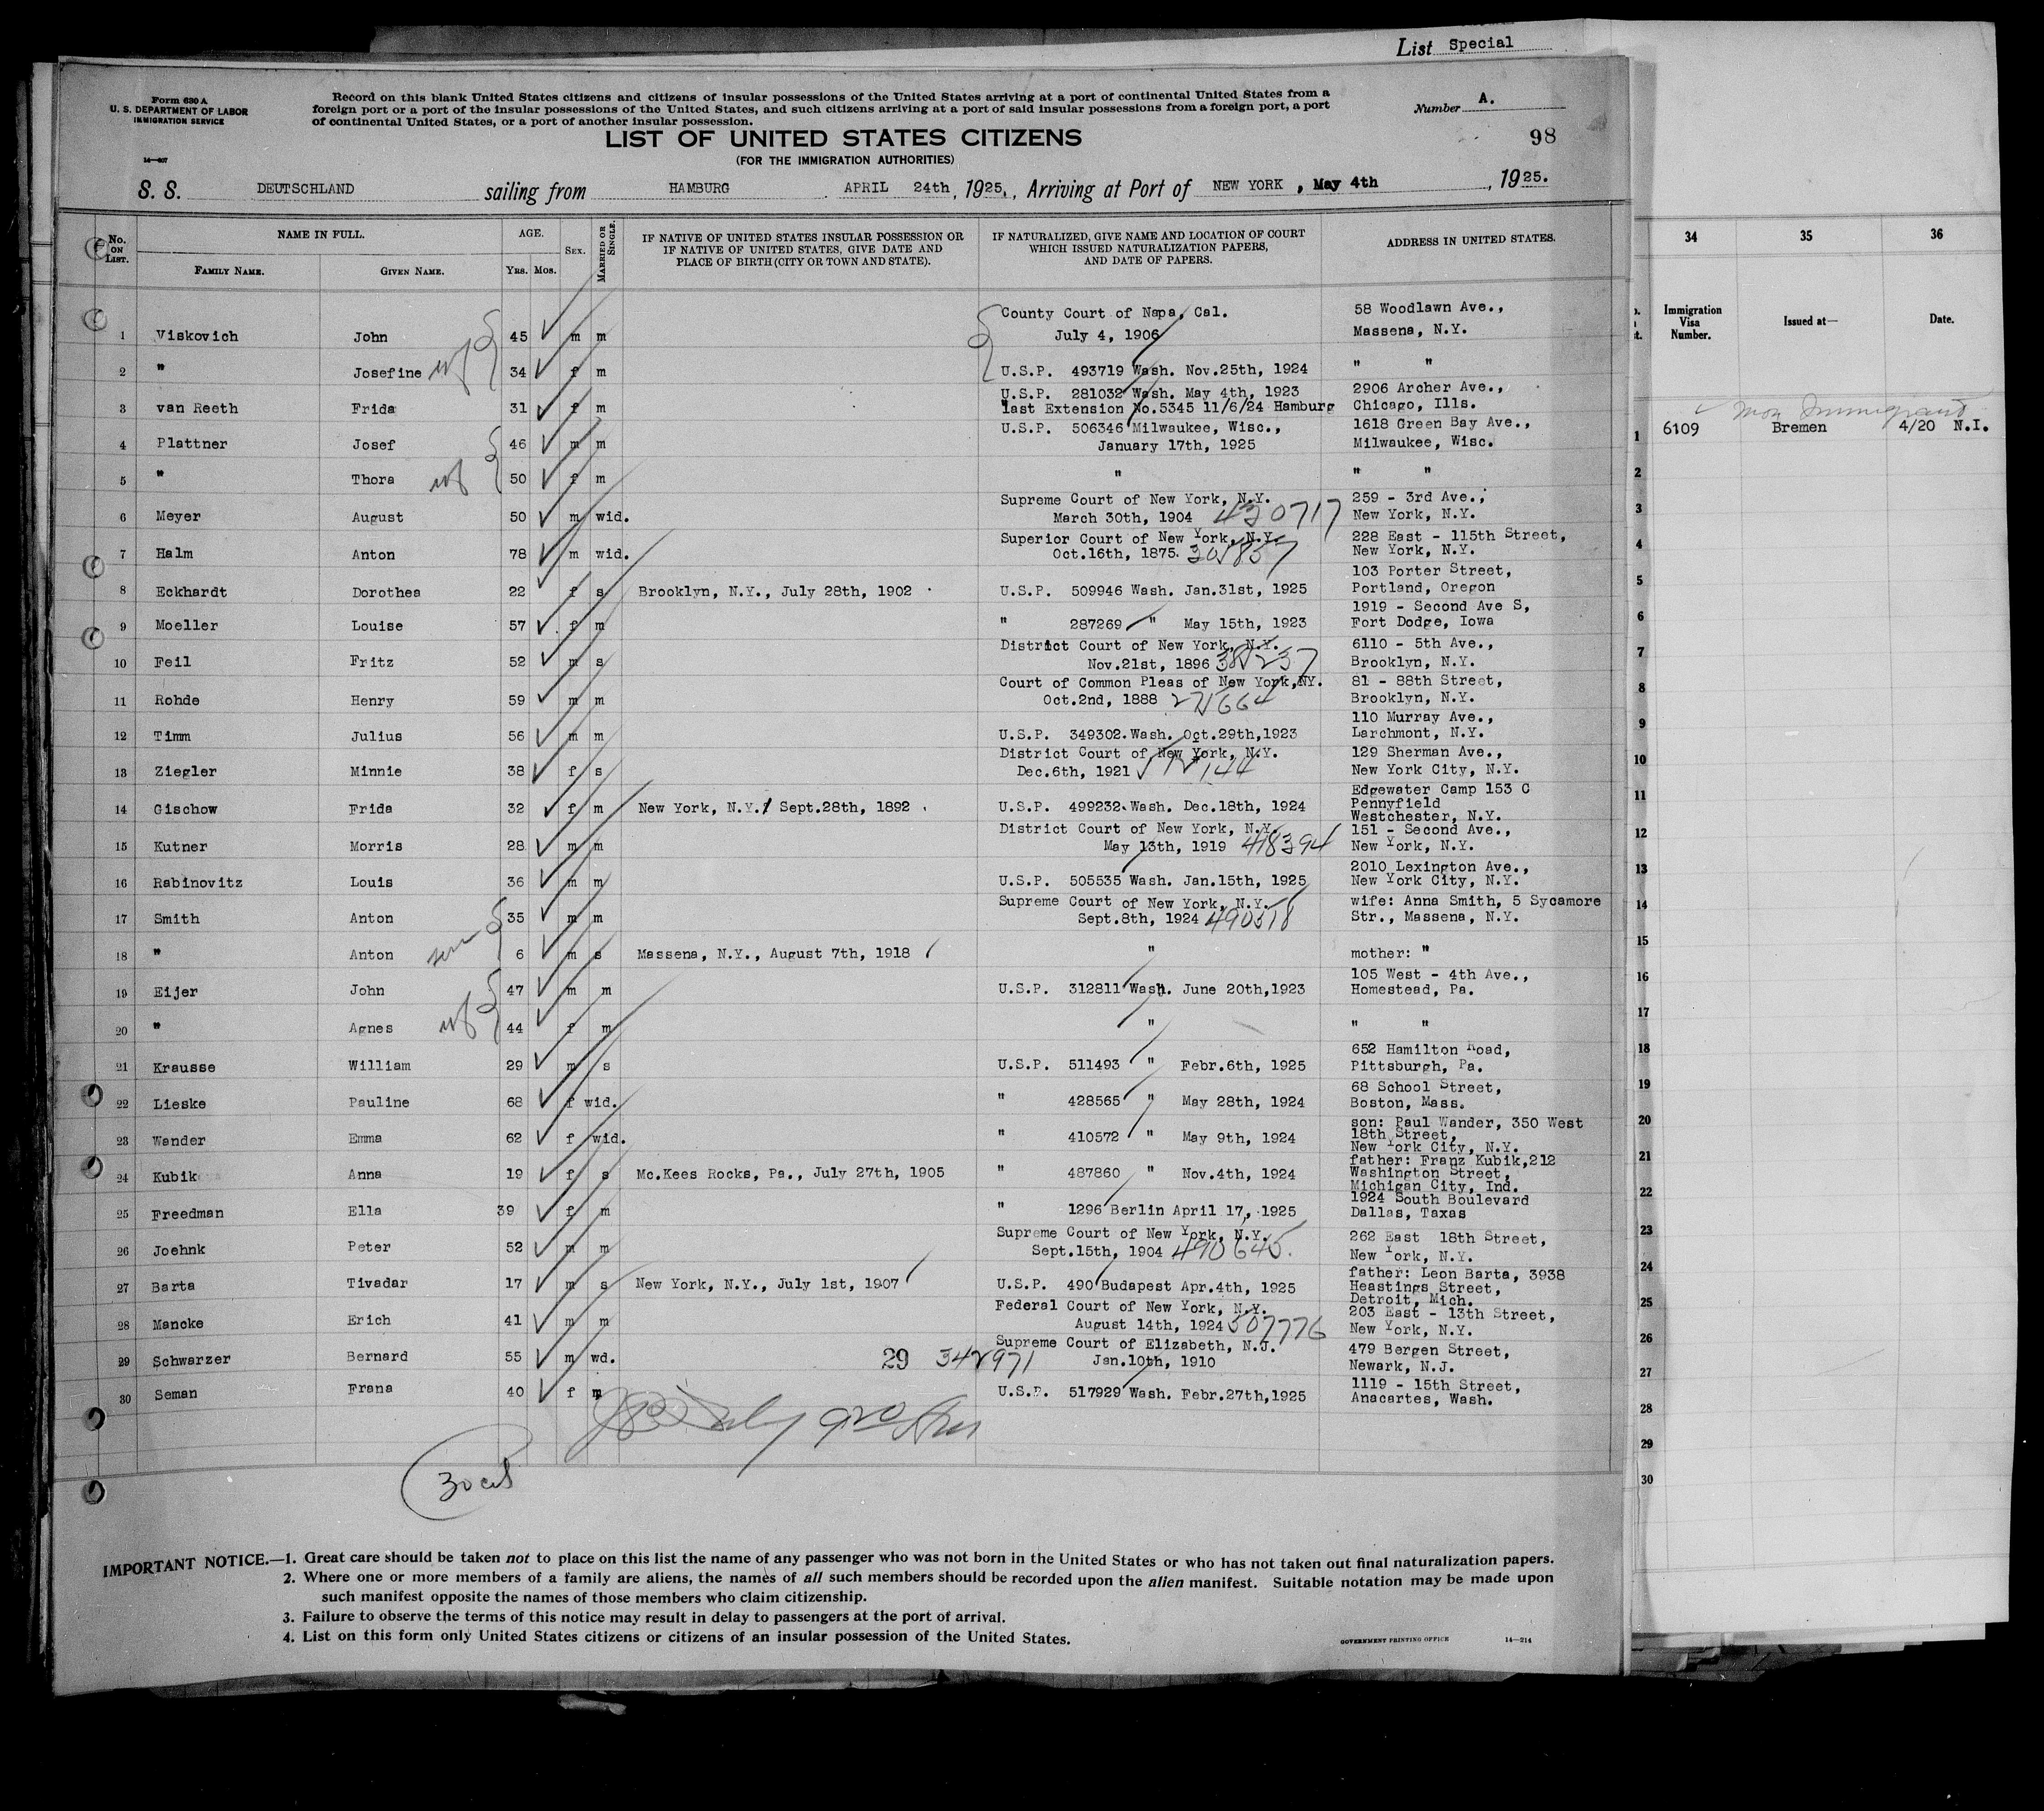 List Special
Form 630 A
U. S. DEPARTMENT OF LABOR
IMMIGRATION SERVICE
14—407
Record on this blank United States citizens and citizens of insular possessions of the United States arriving at a port of continental United States from a
foreign port or a port of the insular possessions of the United States, and such citizens arriving at a port of said insular possessions from a foreign port, a port
of continental United States, or a port of another insular possession.
Number A.
98
LIST OF UNITED STATES CITIZENS
(FOR THE IMMIGRATION AUTHORITIES)
S. S. DEUTSCHLAND sailing from HAMBURG APRIL 24th, 1925., Arriving at Port of NEW YORK, May 4th, 1925.
No. ON LIST. NAME IN FULL. FAMILY NAME. GIVEN NAME. AGE. YRS. MOS. SEX. MARRIED OR SINGLE.
IF NATIVE OF UNITED STATES INSULAR POSSESSION OR
IF NATIVE OF UNITED STATES, GIVE DATE AND
PLACE OF BIRTH (CITY OR TOWN AND STATE).
IF NATURALIZED, GIVE NAME AND LOCATION OF COURT
WHICH ISSUED NATURALIZATION PAPERS,
AND DATE OF PAPERS.
ADDRESS IN UNITED STATES.
County Court of Napa, Cal. 58 Woodlawn Ave.,
1 Viskovich John 45 m m July 4, 1906 Massena, N.Y.
2 " Josefine wf 34 f m U.S.P. 493719 Wash. Nov.25th, 1924 " "
U.S.P. 281032 Wash. May 4th, 1923 2906 Archer Ave.,
3 van Reeth Frida 31 f m last Extension No.5345 11/6/24 Hamburg Chicago, Ills.
U.S.P. 506346 Milwaukee, Wisc., 1618 Green Bay Ave.,
4 Plattner Josef 46 m m January 17th, 1925 Milwaukee, Wisc.
5 " Thora wf 50 f m " " "
Supreme Court of New York, N.Y. 259 - 3rd Ave.,
6 Meyer August 50 m wid. March 30th, 1904 430717 New York, N.Y.
Superior Court of New York, N.Y. 228 East - 115th Street,
7 Halm Anton 78 m wid. Oct.16th, 1875. 305857 New York, N.Y.
103 Porter Street,
8 Eckhardt Dorothea 22 f s Brooklyn, N.Y., July 28th, 1902 U.S.P. 509946 Wash. Jan.31st, 1925 Portland, Oregon
1919 - Second Ave S,
9 Moeller Louise 57 f m " 287269 " May 15th, 1923 Fort Dodge, Iowa
District Court of New York, N.Y. 6110 - 5th Ave.,
10 Feil Fritz 52 m s Nov.21st, 1896 385237 Brooklyn, N.Y.
Court of Common Pleas of New York,NY. 81 - 88th Street,
11 Rohde Henry 59 m m Oct.2nd, 1888 Brooklyn, N.Y.
110 Murray Ave.,
12 Timm Julius 56 m m U.S.P. 349302.Wash. Oct.29th,1923 Larchmont, N.Y.
District Court of New York, N.Y. 129 Sherman Ave.,
13 Ziegler Minnie 38 f s Dec.6th, 1921 New York City, N.Y.
Edgewater Camp 153 C
14 Gischow Frida 32 f m New York, N.Y. Sept.28th, 1892 U.S.P. 499232.Wash. Dec.18th, 1924 Pennyfield
Westchester, N.Y.
District Court of New York, N.Y. 151 - Second Ave.,
15 Kutner Morris 28 m m May 13th, 1919 418394 New York, N.Y.
2010 Lexington Ave.,
16 Rabinovitz Louis 36 m m U.S.P. 505535 Wash. Jan.15th, 1925 New York City, N.Y.
Supreme Court of New York, N.Y. wife: Anna Smith, 5 Sycamore
17 Smith Anton 35 m m Sept.8th, 1924 490518 Str., Massena, N.Y.
18 " Anton son 6 m s Massena, N.Y., August 7th, 1918 " mother: "
105 West - 4th Ave.,
19 Eijer John 47 m m U.S.P. 312811 Wash. June 20th,1923 Homestead, Pa.
20 " Agnes wf 44 f m " " "
652 Hamilton Road,
21 Krausse William 29 m s U.S.P. 511493 " Febr.6th, 1925 Pittsburgh, Pa.
68 School Street,
22 Lieske Pauline 68 f wid. " 428565 " May 28th, 1924 Boston, Mass.
son: Paul Wander, 350 West
23 Wander Emma 62 f wid. " 410572 " May 9th, 1924 18th Street,
New York City, N.Y.
father: Franz Kubik,212
24 Kubik Anna 19 f s Mc.Kees Rocks, Pa., July 27th, 1905 " 487860 " Nov.4th, 1924 Washington Street,
Michigan City, Ind.
1924 South Boulevard
25 Freedman Ella 39 f m " 1296 Berlin April 17, 1925 Dallas, Texas
Supreme Court of New York, N.Y. 262 East 18th Street,
26 Joehnk Peter 52 m m Sept.15th, 1904 490645. New York, N.Y.
father: Leon Barta, 3938
27 Barta Tivadar 17 m s New York, N.Y., July 1st, 1907 U.S.P. 490 Budapest Apr.4th, 1925 Heastings Street,
Detroit, Mich.
Federal Court of New York, N.Y. 203 East - 13th Street,
28 Mancke Erich 41 m m August 14th, 1924 507776 New York, N.Y.
Supreme Court of Elizabeth, N.J. 479 Bergen Street,
29 Schwarzer Bernard 55 m wd. 29 342971 Jan.10th, 1910 Newark, N.J.
1119 - 15th Street,
30 Seman Frana 40 f m U.S.P. 517929 Wash. Febr.27th,1925 Anacartes, Wash.
30
IMPORTANT NOTICE.—1. Great care should be taken not to place on this list the name of any passenger who was not born in the United States or who has not taken out final naturalization papers.
2. Where one or more members of a family are aliens, the names of all such members should be recorded upon the alien manifest. Suitable notation may be made upon
such manifest opposite the names of those members who claim citizenship.
3. Failure to observe the terms of this notice may result in delay to passengers at the port of arrival.
4. List on this form only United States citizens or citizens of an insular possession of the United States.
GOVERNMENT PRINTING OFFICE 14—214
34 35 36
Immigration Visa Number. Issued at— Date.
Non Immigrant
1 6109 Bremen 4/20 N.I.
2
3
4
5
6
7
8
9
10
11
12
13
14
15
16
17
18
19
20
21
22
23
24
25
26
27
28
29
30